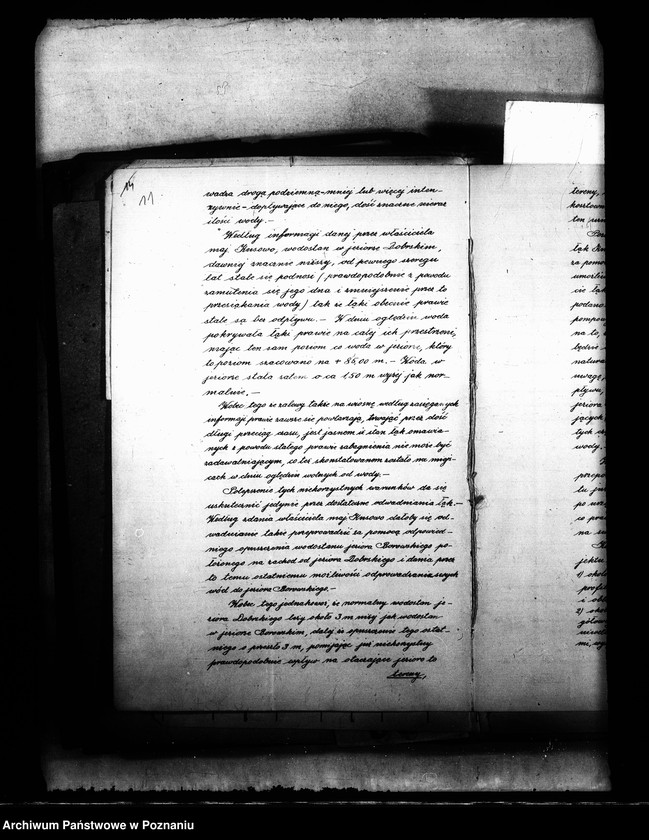 11
wadza drogą podziemną - mniej lub więcej inten-
zywnie - dopływające do niego, dość znaczne nieraz
ilości wody. -
Według informacji danej przez właściciela
maj. Kursowo, wodostan w jeziorze Dobrskiem,
dawniej znacznie niższy, od pewnego szeregu
lat stale się podnosi (prawdopodobnie z powodu
zamulenia się jego dna i zmniejszenie przez to
przesiąkania wody) tak że łąki obecnie prawie
stale są bez odpływu. - W dniu oględzin woda
pokrywała łąki prawie na całej ich przestrzeni,
mając ten sam poziom co woda w jeziorze, który
to poziom szacowano na + 85,00 m. - Woda w
jeziorze stała zatem o ca 1.50 m wyżej jak nor-
malnie. -
Wobec tego że zalewy takie na wiosnę według zasięgniętych
informacji prawie zawsze się powtarzają, trwając przez dość
długi przeciąg czasu, jest jasnem iż stan łąk omawia-
nych z powodu stałego prawie zabagnienia nie może być
zadawalniającym, co też skonstatowanem zostało na miejs-
cach w dniu oględzin wolnych od wody. -
Polepszenie tych niekorzystnych warunków da się
uskutecznić jedynie przez dostateczne odwadnianie łąk. -
Według zdania właściciela maj. Kursowo dałoby się od-
wadnianie takie przeprowadzić za pomocą odpowied-
niego opuszczenia wodostanu jeziora Borowskiego po-
łożonego na zachod od jeziora Dobrskiego i dania przez
to temu ostatniemu możliwości odprowadzania swych
wód do jeziora Borowskiego. -
Wobec tego jednakowoż, że normalny wodostan je-
ziora Dobrskiego leży około 3 m niżej jak wodostan
w jeziorze Borowskiem, dałej iż opuszczenie tego ostat-
niego o przeszło 3 m, pomijając już niekorzystny
prawdopodobnie wpływ na otaczające jezioro to
tereny,
tereny,
ten
tak
za pomo
cie łąk
podano
pompowa
na to,
będzie
natura
uwagę,
pływu,
jeziora
jących,
tych
wody.
po
na
1) około
i
2) około
Archiwum Państwowe w Poznaniu